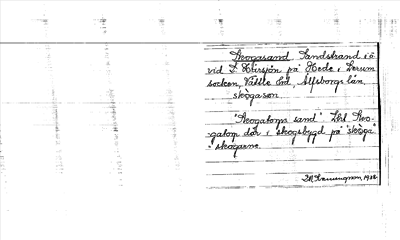 Skogasand Sandstrand i ö
vid S. Härsjön på Hede i Lerum
socken, Vättle hd, Älfsborgs län.
skògasan
"Skogatorps sand". Låt Sko-
gatorp där i skogsbygd på "skoga"
- skogarne.
1922